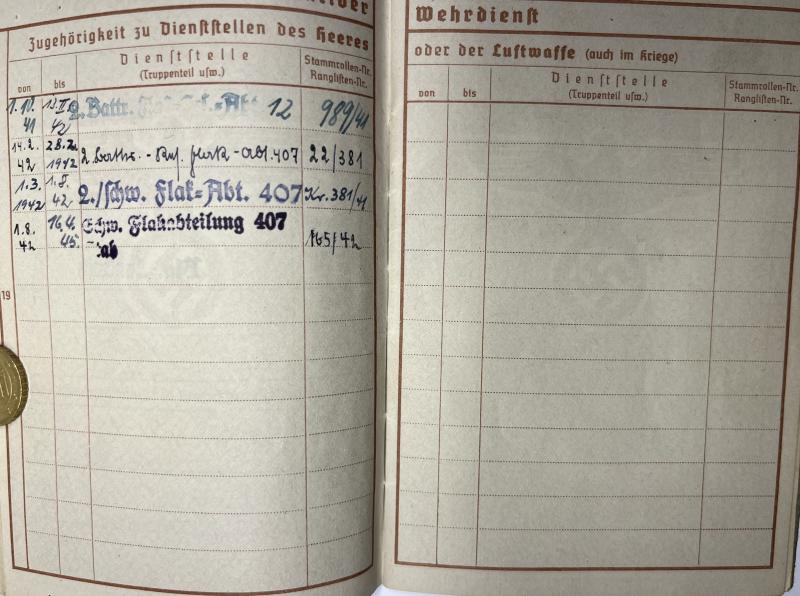 Wehrdienst
Zugehörigkeit zu Dienststellen des Heeres
oder der Luftwaffe (auch im Kriege)
von
bis
Dienststelle
(Truppenteil usw.)
Stammrollen-Nr.
Ranglisten-Nr.
von
bis
Dienststelle
(Truppenteil usw.)
Stammrollen-Nr.
Ranglisten-Nr.
1.10. 13.II. 2. Battr. Abt 12 989/41
41 42
14.2. 28.2. 2. Battr. - Flak - Abt. 407 22/381
42 1942
1.3. 1.8. 2./schw. Flak=Abt. 407 Kr. 381/41
1942 42.
1.8. 16.4. Schw. Flakabteilung 407 165/42
42 45.
19
10